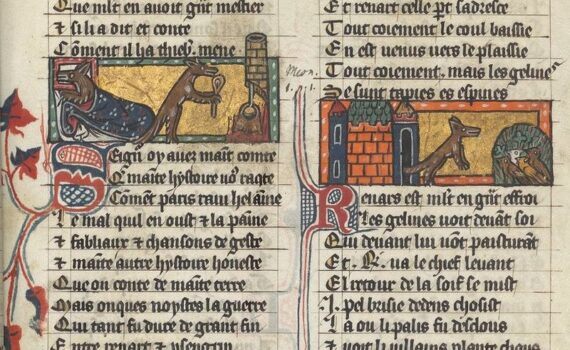 Que mlt en auoit gñt mestier
⁊ si li a dit et conte
Cõment il ha thieb. mene
Seignr oy auez maĩt conte
Q̃ mainte hystoire uo9 racõte
Comẽt paris raui helaine
Le mal quil en oust ⁊ la paĩne
⁊ fabliaux ⁊ chansons de geste
⁊ maĩte autre hystoire honeste
Que on conte de maĩte terre
Mais onques noystes la guerre
Qui tant fu duce de grant fin
Entre renart ⁊ ysengrin
Meon.
Et renart celle pt sadresce
Tout coiement le coul baissie
En est uenus uers le plaissie
Tout coiement. mais les gelines
Se sunt tapies es espines
Renars est mlt en gñt effroi
Les gelines uoit deuãt soi
Qui deuant lui uõt pasturãt
Et .R. ua le chief leuant
El retour de la soif se mist
.I. pel brisie dedens choisist
La ou li palis fu desclous
⁊ uoit li uillains plante chous